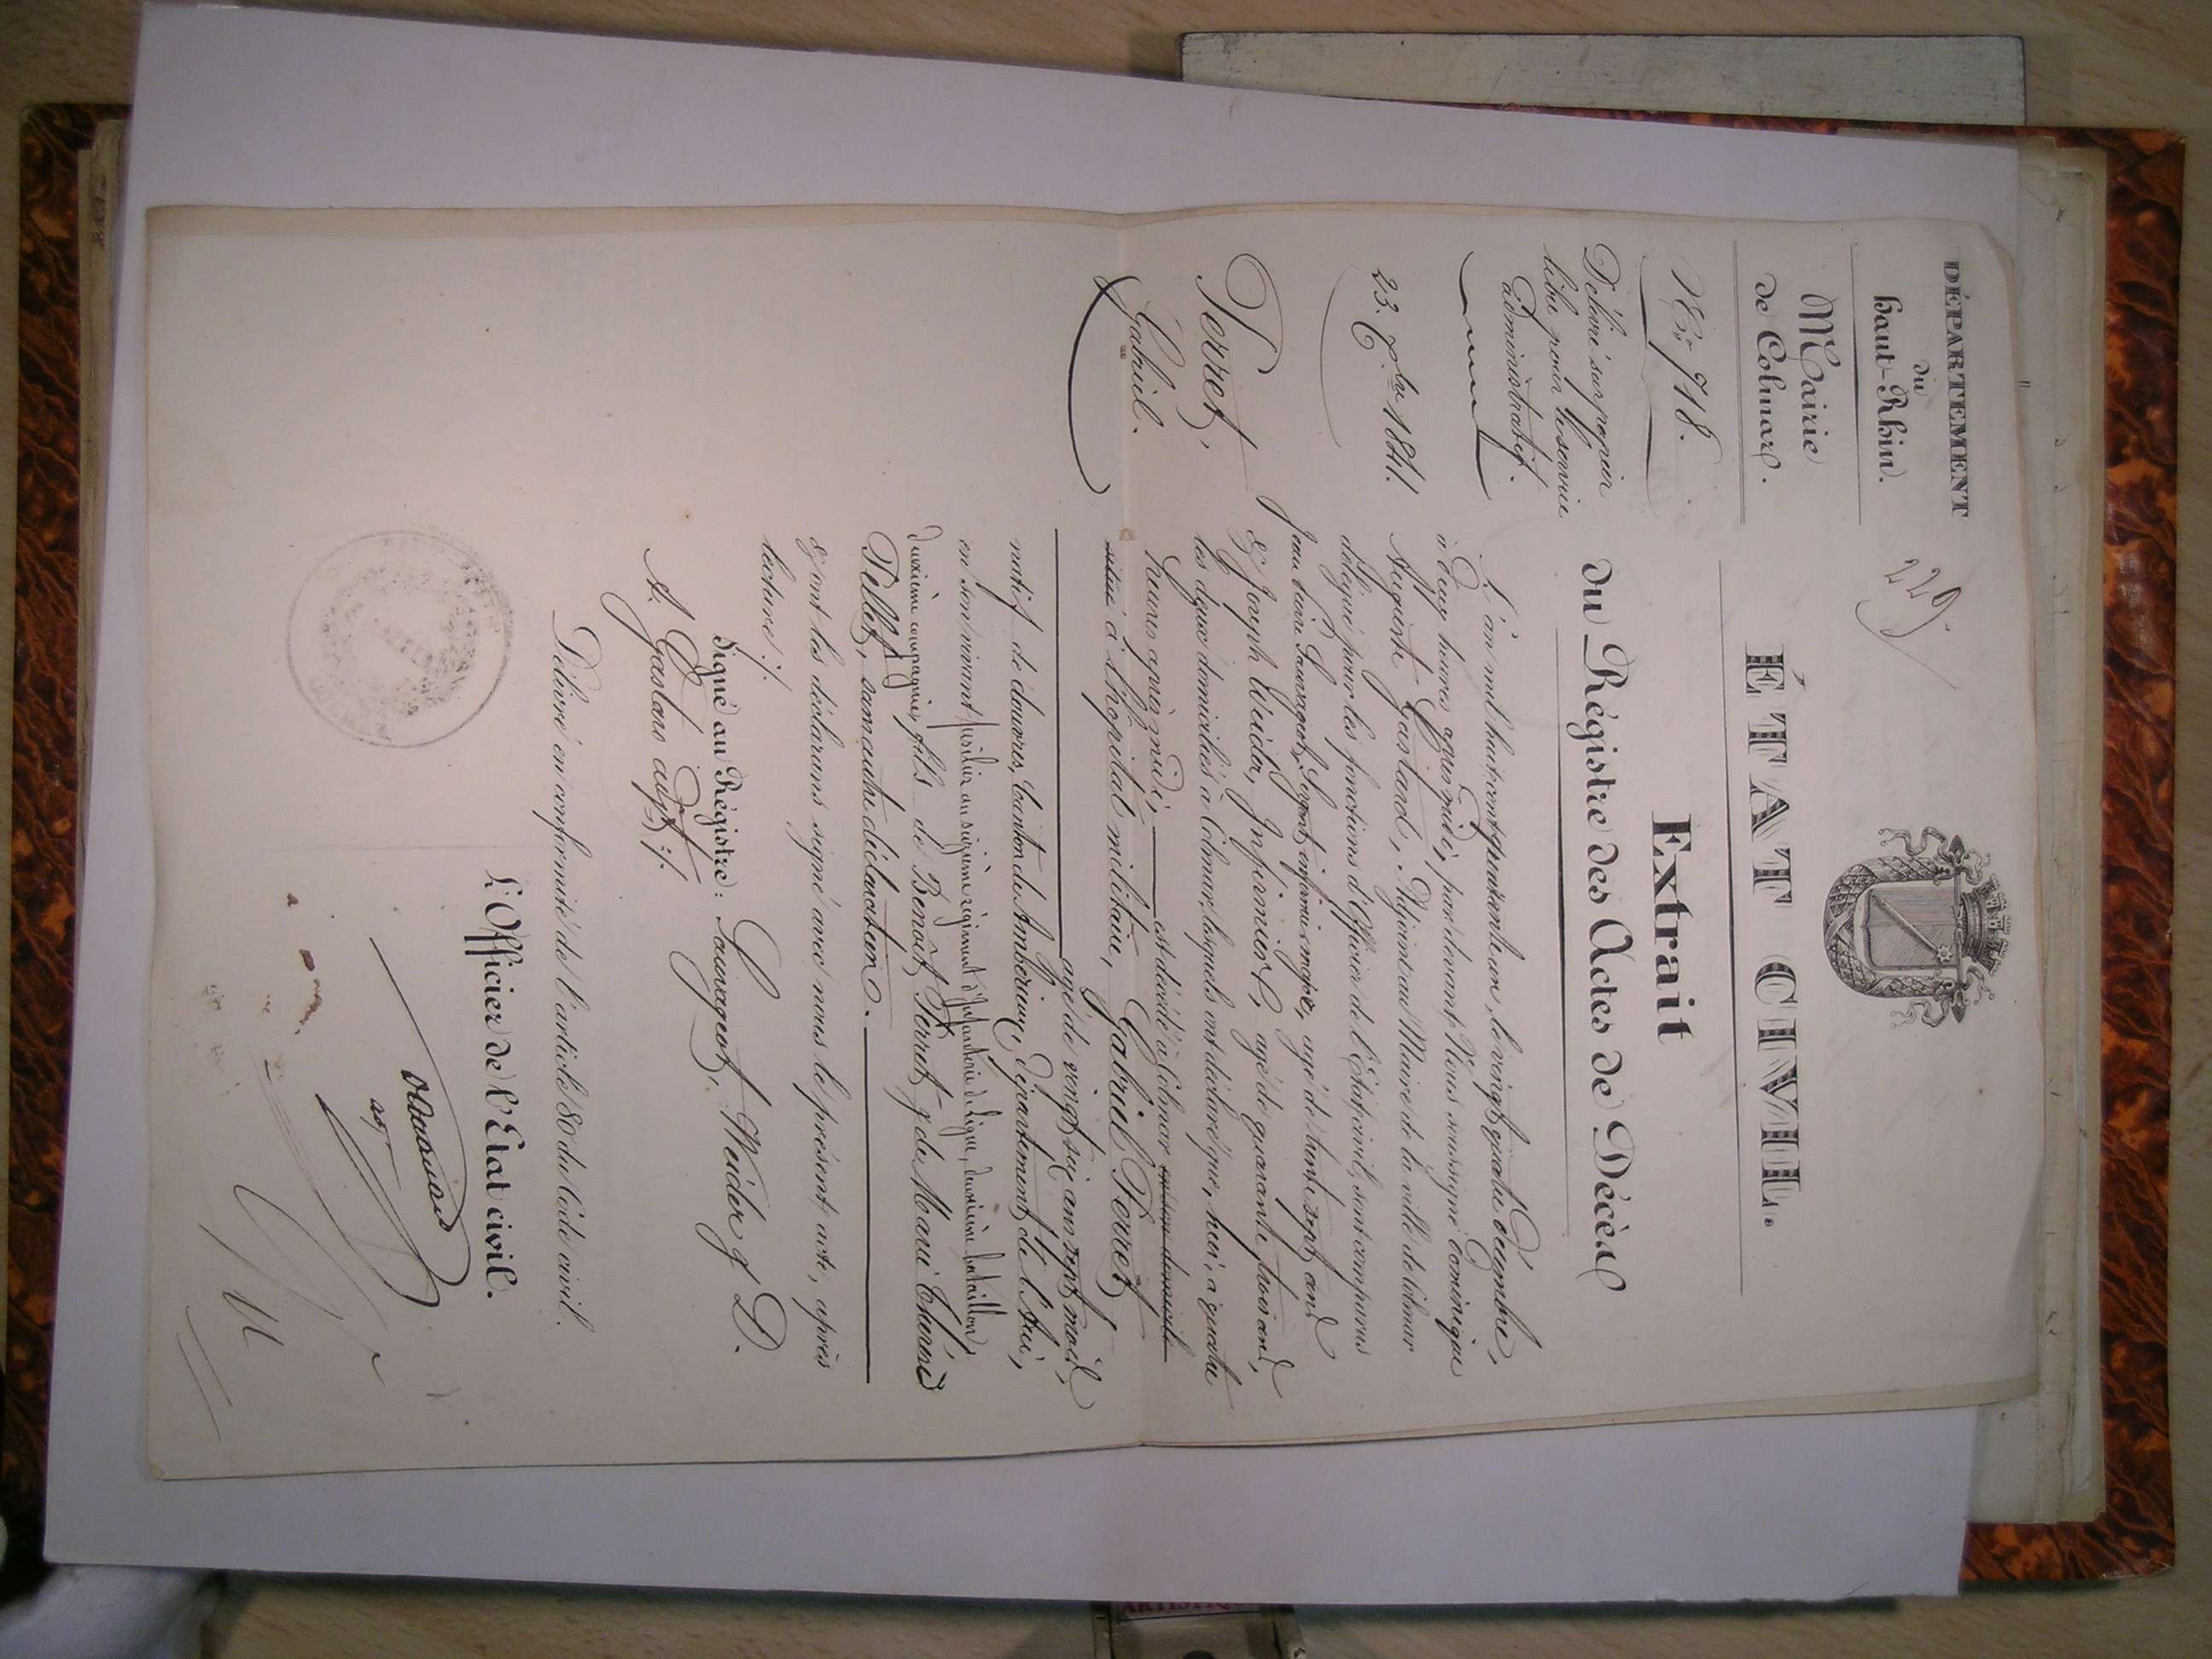 DÉPARTEMENT
du
haut-Rhin.
Mairie
de Colmar.
No. 718.
Délivré sur papier
libre pour le service
administratif.
23. Xbre 1841.
Ferret,
Gabriel.
229.
ÉTAT CIVIL.
Extrait
du Régistre des Actes de Décès
L'an mil huit cent quarante un, le vingt quatre décembre,
à deux heures après midi, par devant Nous soussigné Dominique
Auguste Gastard, Adjoint au Maire de la ville de Colmar
délégué pour les fonctions d'Officier de l'État civil, sont comparus
Jean Sauvageot, Sergent infirmier major, agé de trente sept ans
& Joseph Weider, Infirmier, agé de quarante trois ans,
les deux domiciliés à Colmar, lesquels ont déclaré que, hier, à quatre
heures après midi, est décédé à Colmar en son domicile
situé à l'hopital militaire, Gabriel Ferret,
agé de vingt six ans sept mois,
natif de douvres, Canton de Ambérieux, Département de l'Ain,
en son vivant fusilier au sixième régiment d'Infanterie de Ligne, deuxième bataillon
deuxième compagnie, fils de Benoit Ferret & de Marie Therese
Pellet, sa mère, suivant déclaration.
& ont les déclarans signé avec nous le présent acte, après
lecture ./.
Signé au Régistre: Sauvageot, Weider & D.
A. Gastard adjt ./.
Délivré en conformité de l'article 80 du Code civil.
L'Officier de l'État civil.
ARTISTIQ